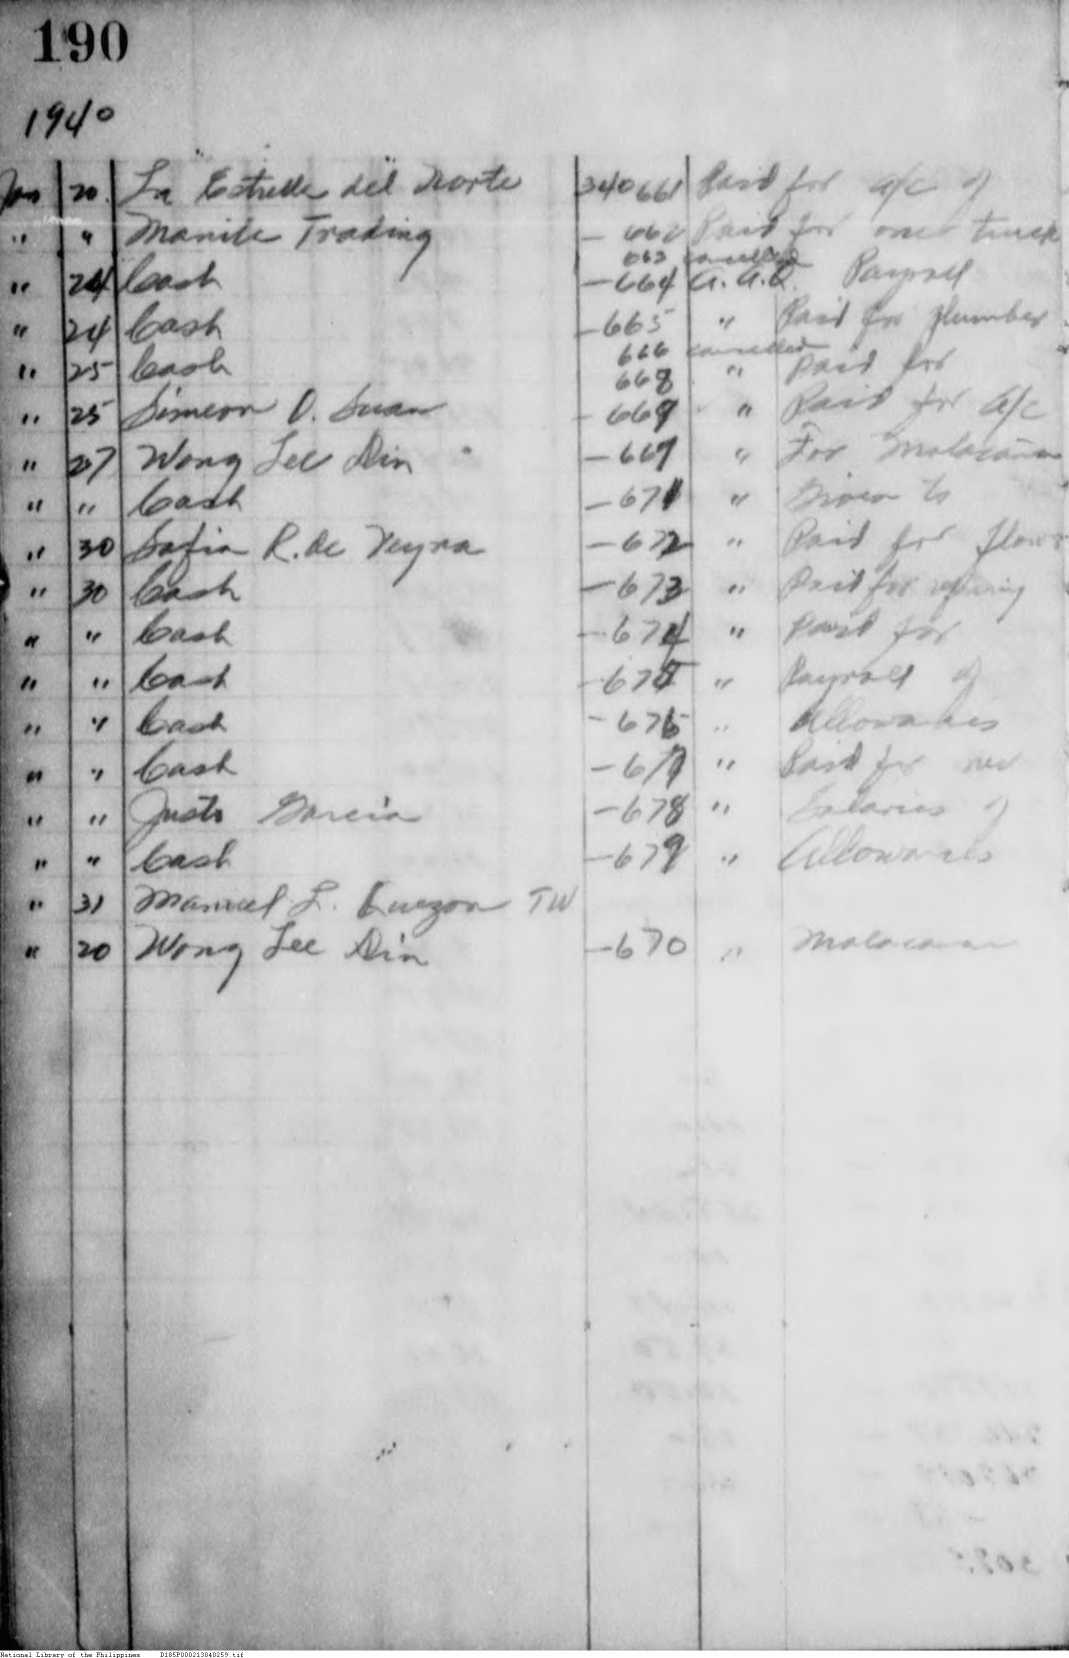 190
1940
Jan 20 La Estrella del Norte 340661 Paid for a/c of
" " Manila Trading - 662 Paid for one truck
663 cancelled
" 24 Cash - 664 A. A. Q. Payroll
" 24 Cash - 665 " Paid for plumber
666 cancelled
" 25 Cash 668 " Paid for
" 25 Simeon O. Suan - 669 " Paid for a/c
" 27 Wong Lee Din - 669 " For Malacañan
" " Cash - 671 " Given to
" 30 Sofia R. de Veyra - 672 " Paid for
" 30 Cash - 673 " Paid for
" " Cash - 674 " Paid for
" " Cash - 675 " Payroll of
" " Cash - 676 " Allowances
" " Cash - 677 " Paid for
" " Justo Garcia - 678 " Salaries of
" " Cash - 679 " Allowances
" 31 Manuel L. Quezon TW
" 20 Wong Lee Din - 670 " Malacanan
National Library of the Philippines D185P000213040259.tif